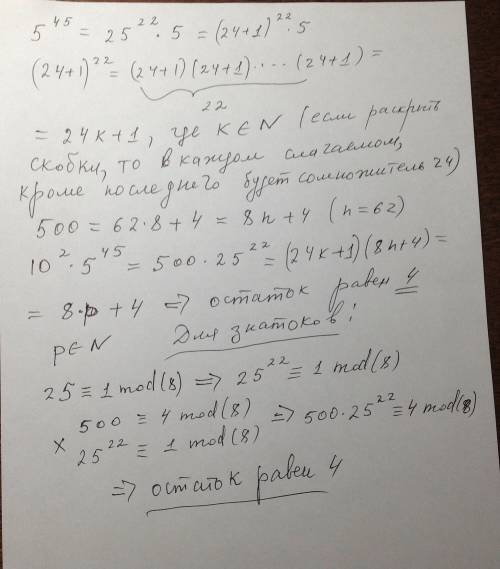 5^45 = 25^22 · 5 = (24+1)^22 · 5
(24+1)^22 = (24+1)(24+1)· ... ·(24+1) =
22
= 24k+1, где K∈N (если раскрыть
скобки, то в каждом слагаемом,
кроме последнего будет сомножитель 24)
500 = 62·8+4 = 8n+4 (n=62)
10^2 · 5^45 = 500 · 25^22 = (24k+1)(8n+4) =
= 8·p + 4 ⇒ остаток равен 4
p∈N Для знатоков!
25 ≡ 1 mod(8) ⇒ 25^22 ≡ 1 mod(8)
× 500 ≡ 4 mod(8) ⇒ 500·25^22 ≡ 4 mod(8)
25^22 ≡ 1 mod(8)
⇒ остаток равен 4